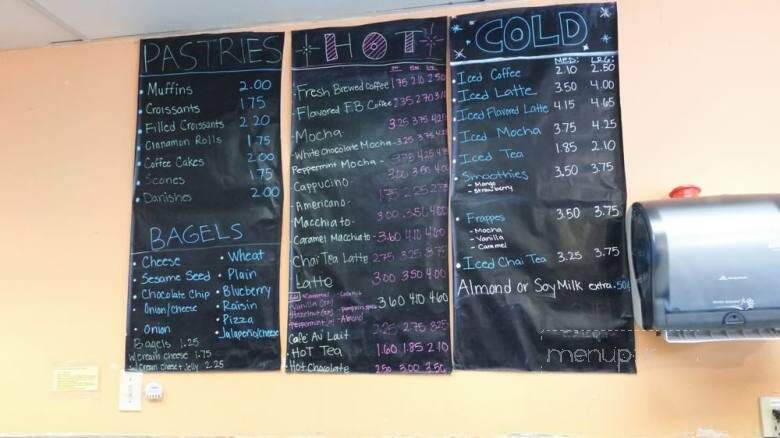 PASTRIES
Muffins 2.00
Croissants 1.75
Filled Croissants 2.20
Cinnamon Rolls 1.75
Coffee Cakes 2.00
Scones 1.75
Danishes 2.00
BAGELS
Cheese
Sesame Seed
Chocolate Chip
Onion/cheese
Onion
Wheat
Plain
Blueberry
Raisin
Pizza
Jalapeño/cheese
Bagels 1.25
w/cream cheese 1.75
w/cream cheese + jelly 2.25
HOT
Fresh Brewed Coffee 1.75 2.10 2.50
Flavored F.B. Coffee 2.35 2.70 3.10
Mocha 3.25 3.75 4.25
White Chocolate Mocha - 3.25 3.75 4.25
Peppermint Mocha - 3.75 4.25
Cappuccino 3.00 3.50 4.00
Americano 1.75 2.25 2.75
Macchiato 3.00 3.50 4.00
Caramel Macchiato - 3.60 4.10 4.60
Chai Tea Latte 2.75 3.25 3.75
Latte 3.00 3.50 4.00
3.60 4.10 4.60
Café Au Lait 2.25 2.75 3.25
Hot Tea 1.60 1.85 2.10
Hot Chocolate 2.50 3.00 3.50
COLD
MED: LRG:
Iced Coffee 2.10 2.50
Iced Latte 3.50 4.00
Iced Flavored Latte 4.15 4.65
Iced Mocha 3.75 4.25
Iced Tea 1.85 2.10
Smoothies 3.50 3.75
- Mango
- Strawberry
Frappes 3.50 3.75
- Mocha
- Vanilla
- Caramel
Iced Chai Tea 3.25 3.75
Almond or Soy Milk extra .50¢
menupix